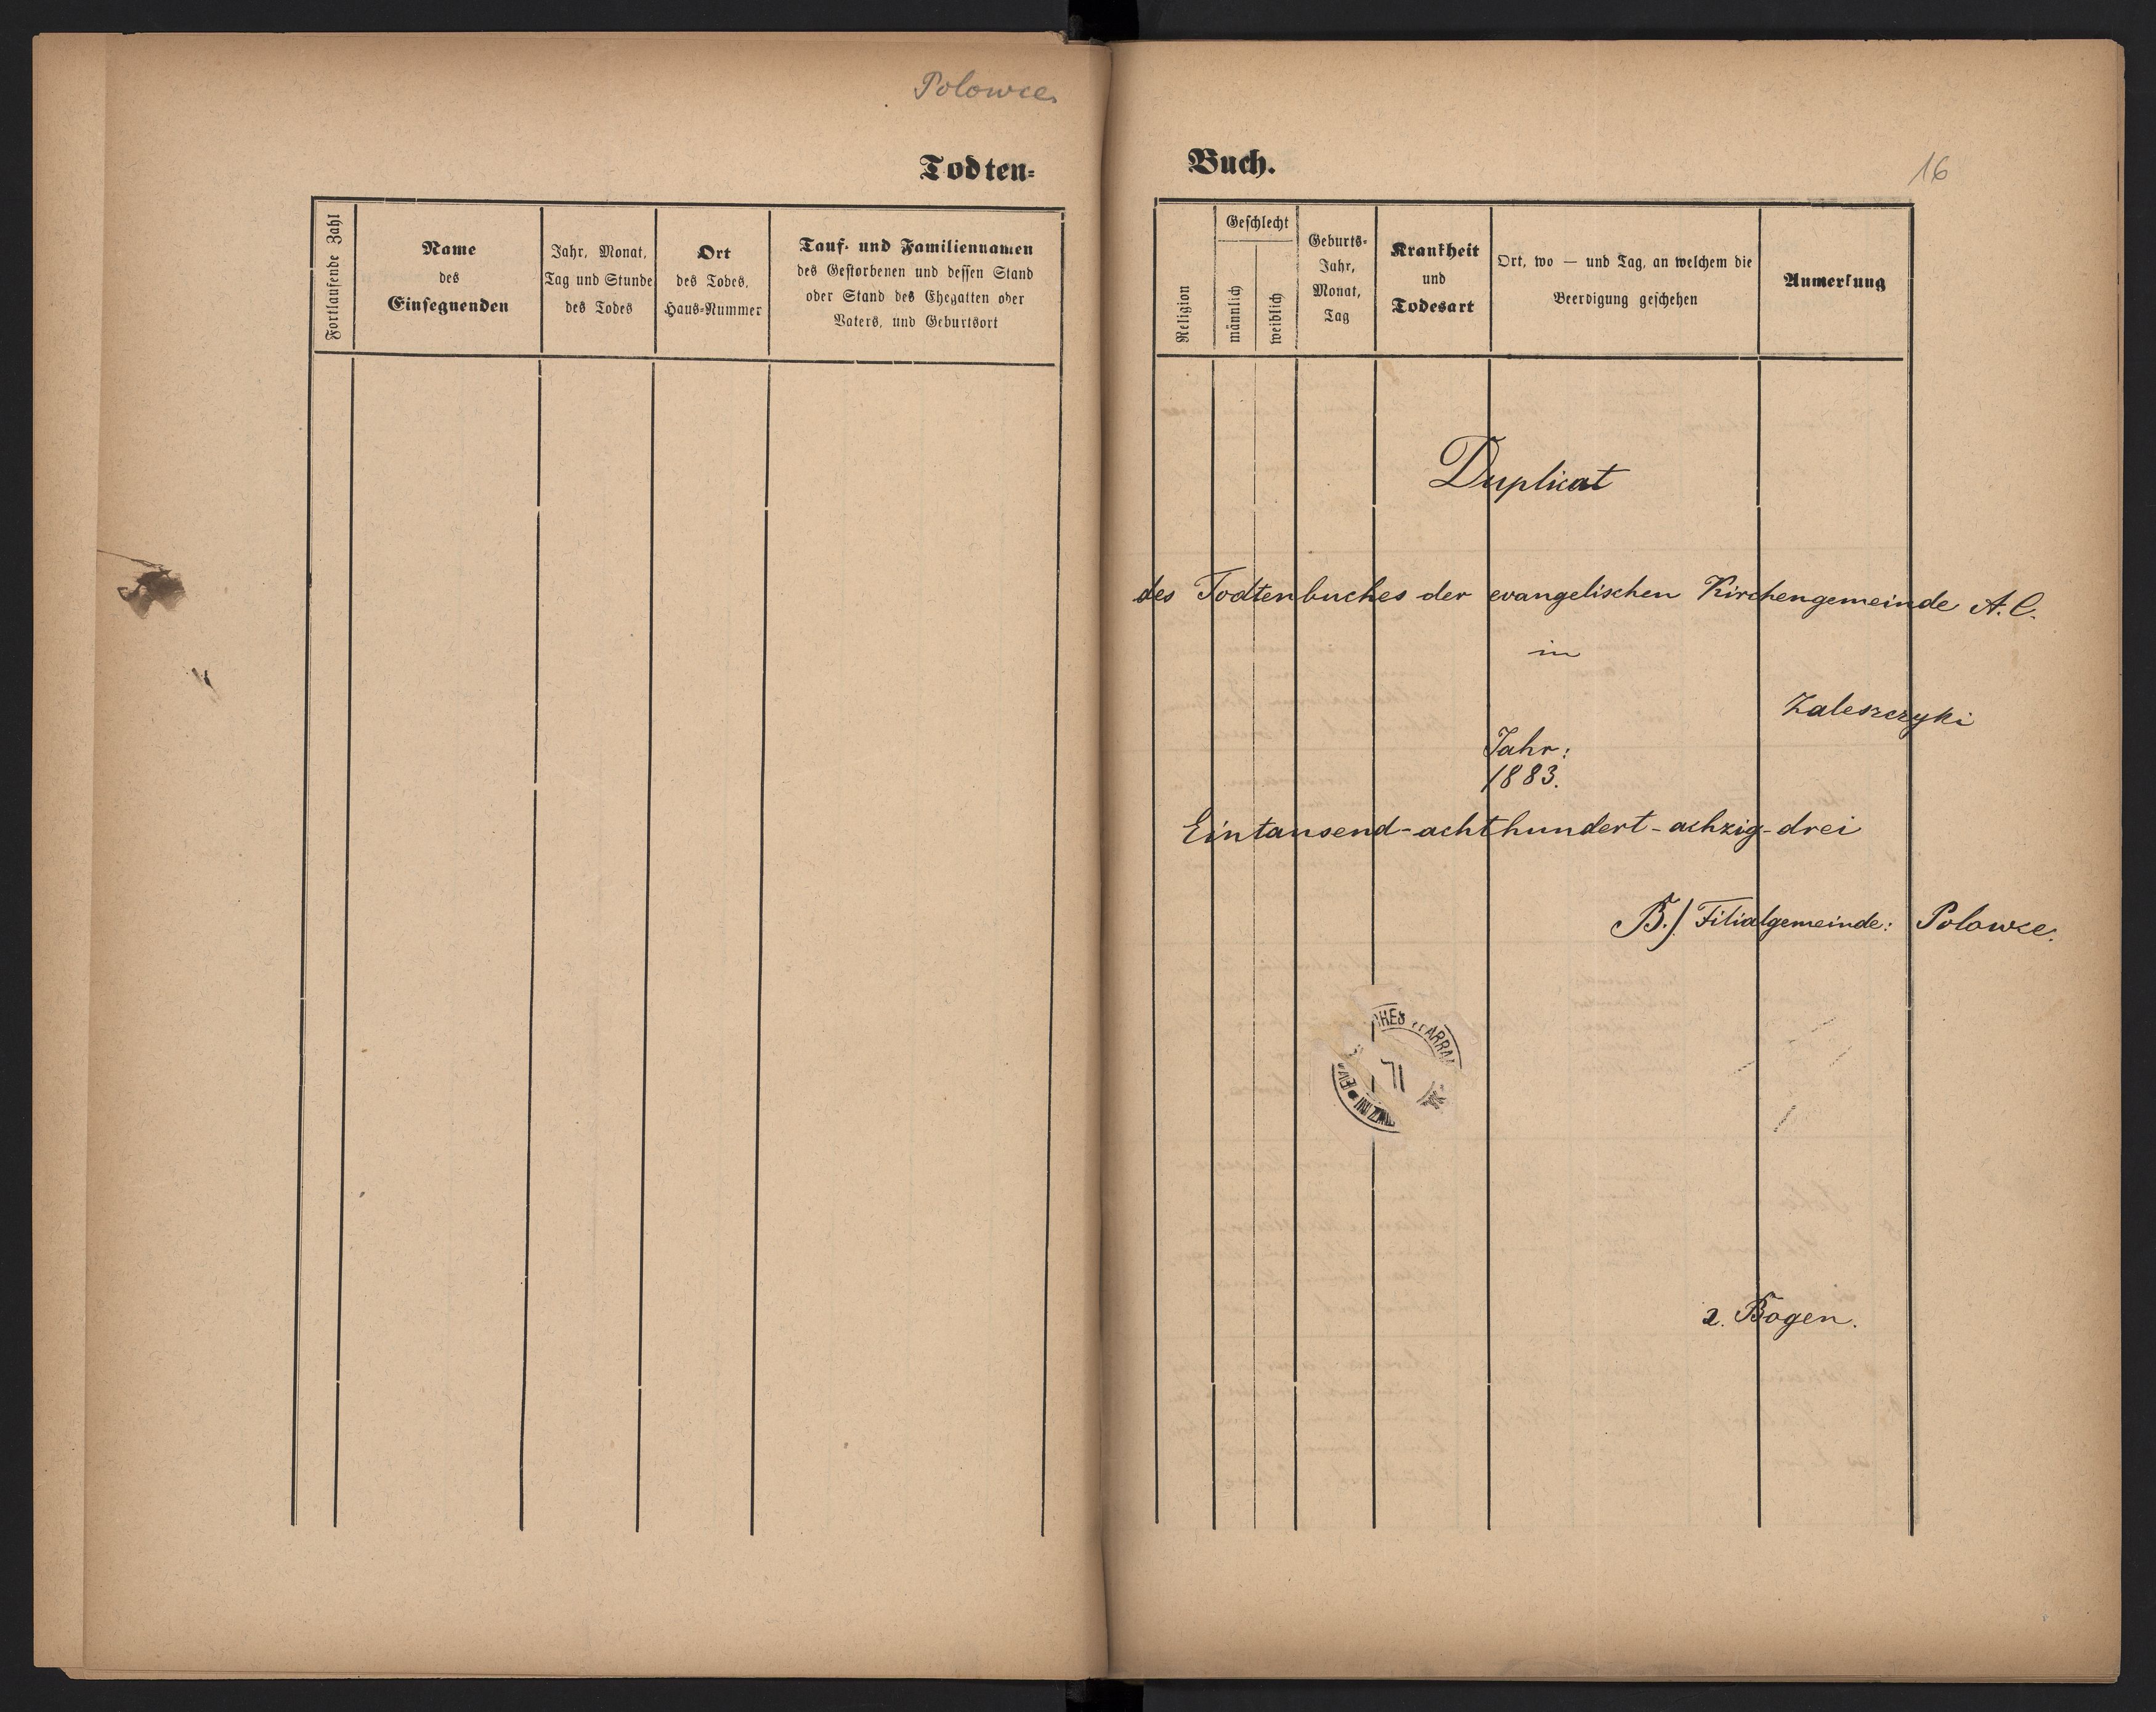 Polowce
Todten-
Fortlaufende Zahl
Name
des
Einsegnenden
Jahr, Monat,
Tag und Stunde
des Todes
Ort
des Todes,
Haus-Nummer
Tauf- und Familiennamen
des Gestorbenen und dessen Stand
oder Stand des Ehegatten oder
Vaters, und Geburtsort
Buch.
16
Religion
Geschlecht
männlich
weiblich
Geburts-
Jahr,
Monat,
Tag
Krankheit
und
Todesart
Ort, wo — und Tag, an welchem die
Beerdigung geschehen
Anmerkung
Duplicat
des Todtenbuches der evangelischen Kirchengemeinde A. C.
in
Zaleszczyki
Jahr:
1883.
Eintausend-achthundert-achzig-drei
B./ Filialgemeinde: Polowce.
2. Bogen.